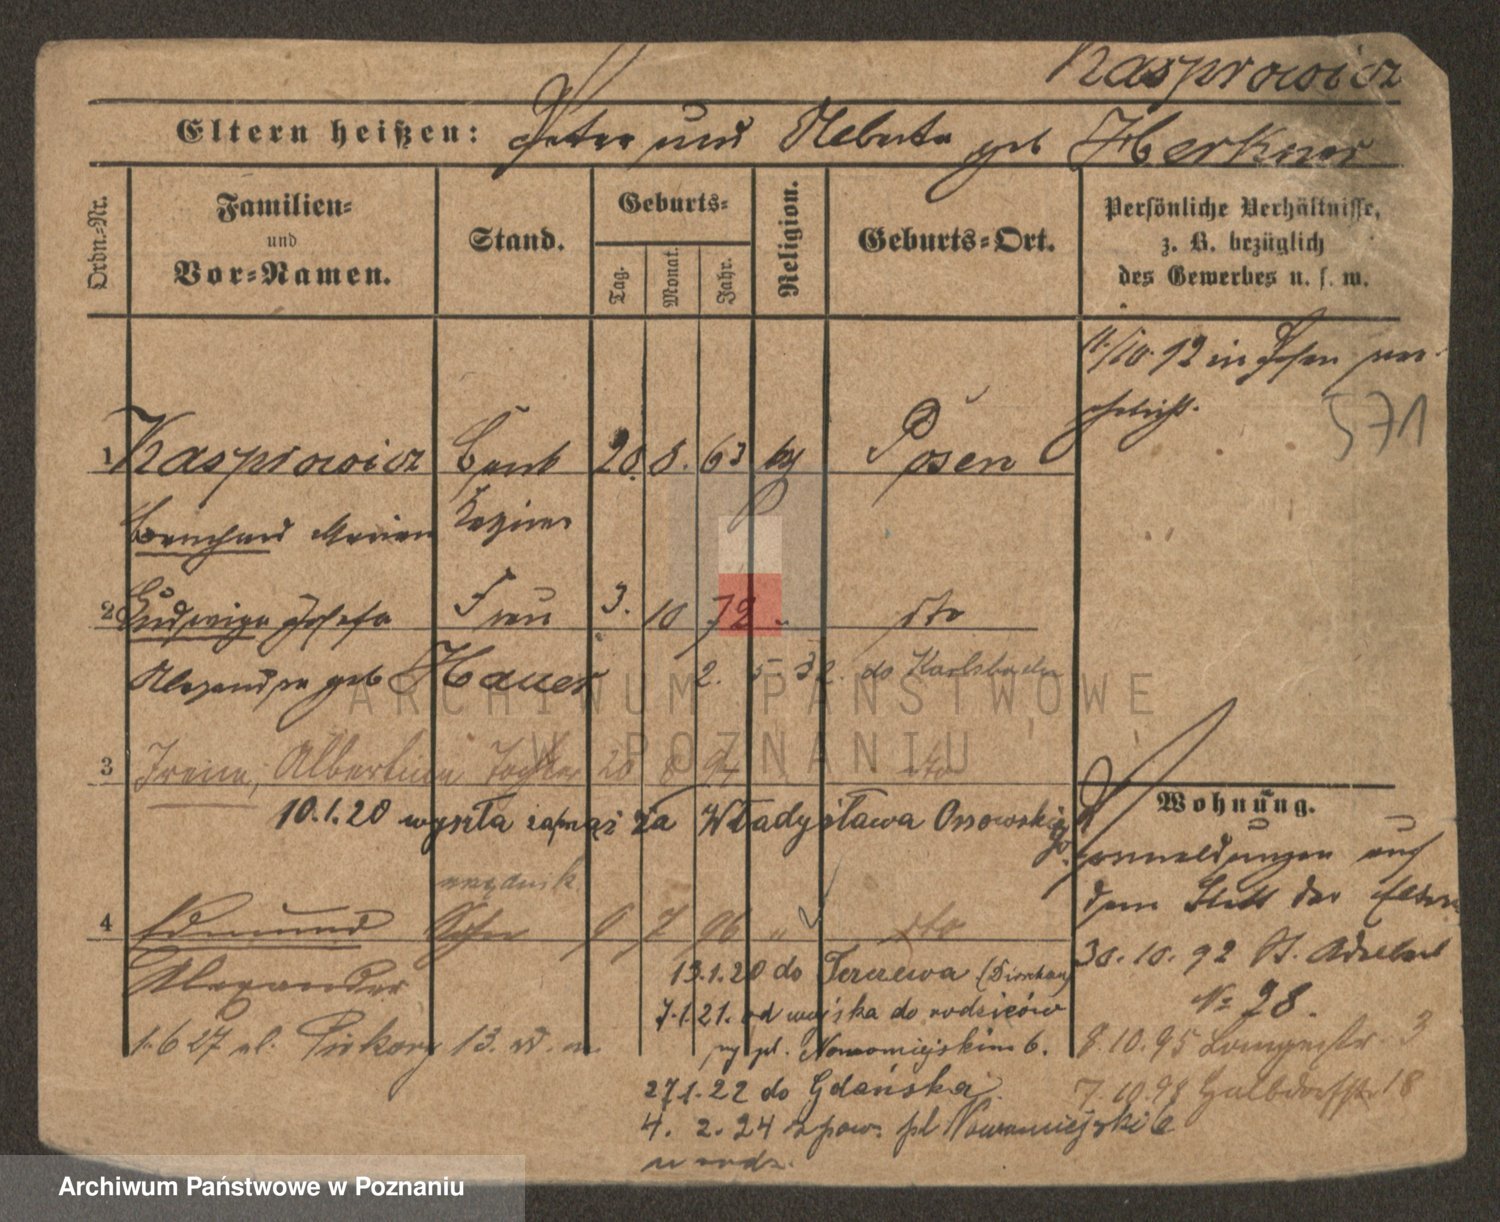 Kasprowicz
Eltern heißen: Peter und Alberta geb Herkner
Ordn.-Nr.
Familien-
und
Vor-Namen.
Stand.
Geburts-
Tag.
Monat.
Jahr.
Religion.
Geburts-Ort.
Persönliche Verhältnisse,
z. B. bezüglich
des Gewerbes u. s. w.
11/10. 92 in Posen ver-
ehelicht.
571
1 Kasprowicz 20. 8. 63 Posen
Bernhard
2 Ludwiga Josefa Frau 3. 10 72 " dto
Alexandra geb Hauer 2. 5. 32. do Karlsbadu
3 Irene, Albertine Tochter 20 8 94 " dto
10.1.20 wyszła zamąż za Władysława Ossowskiego
Wohnung.
Anmeldungen auf
dem Blatt der Eltern
urzędnik
4 Edmund Sohn 9 7 96 " dto
Alexander
30. 10. 92 St. Adalbert
№ 28.
13.1.20 do Tczewa (Dirschau)
7.1.21. od wojska do rodziców
1.6 27 ul. 13.
przy pl. Nowomiejskim 6.
8.10.95 Langestr. 3
27.1.22 do Gdańska
7.10.98 Halbdorfstr 18
4. 2. 24 zpow. pl Nowomiejski 6
u rodz.
ARCHIWUM PAŃSTWOWE
W POZNANIU
Archiwum Państwowe w Poznaniu